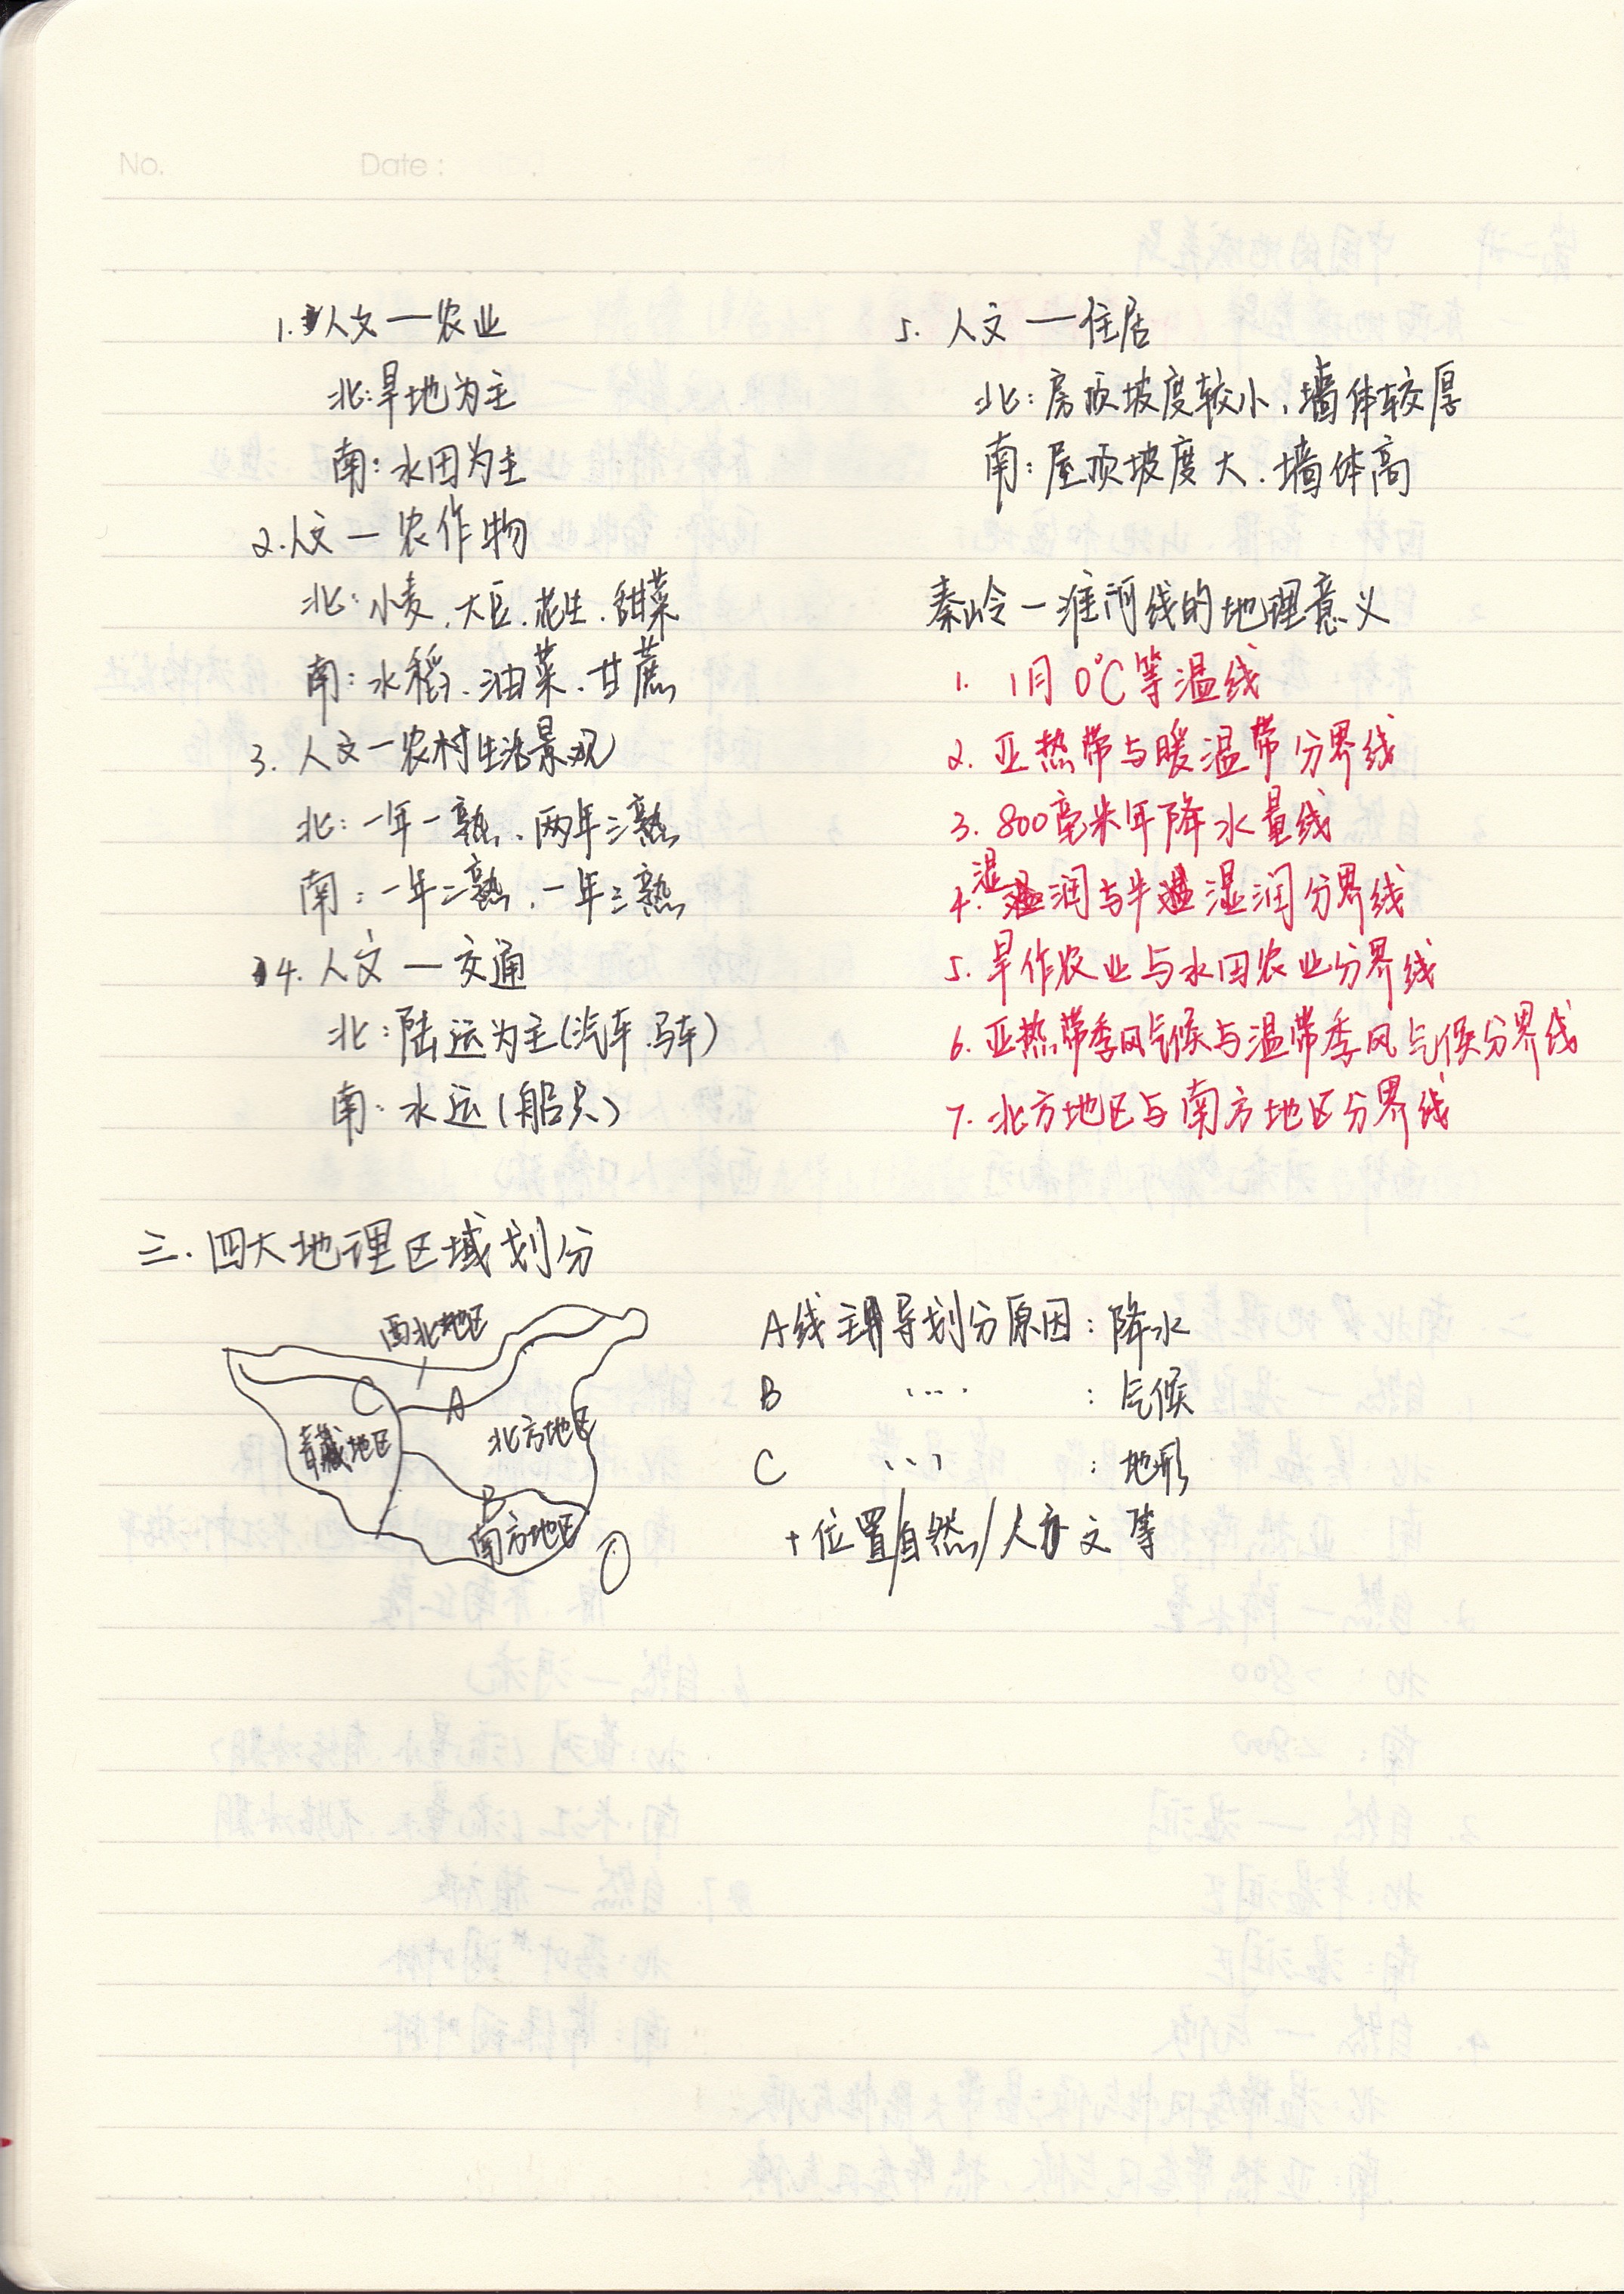 No. Date:
1. 人文一农业
北:旱地为主
南:水田为主
2.人文一农作物
北:小麦.大豆.花生.甜菜
南:水稻.油菜.甘蔗
3. 人文一农村生活景观
北:一年一熟、两年三熟
南:一年二熟、一年三熟
4. 人文一交通
北:陆运为主(汽车.马车)
南:水运(船只)
5. 人文一住居
北:房顶坡度较小,墙体较厚
南:屋顶坡度大.墙体高
秦岭一淮河线的地理意义
1. 1月0℃等温线
2. 亚热带与暖温带分界线
3. 800毫米年降水量线
4. 湿润与半湿润分界线
5. 旱作农业与水田农业分界线
6. 亚热带季风气候与温带季风气候分界线
7. 北方地区与南方地区分界线
三.四大地理区域划分
西北地区
C
A
青藏地区
北方地区
B
南方地区
A线主导划分原因:降水
B …. :气候
C … :地形
+位置/自然/人文等